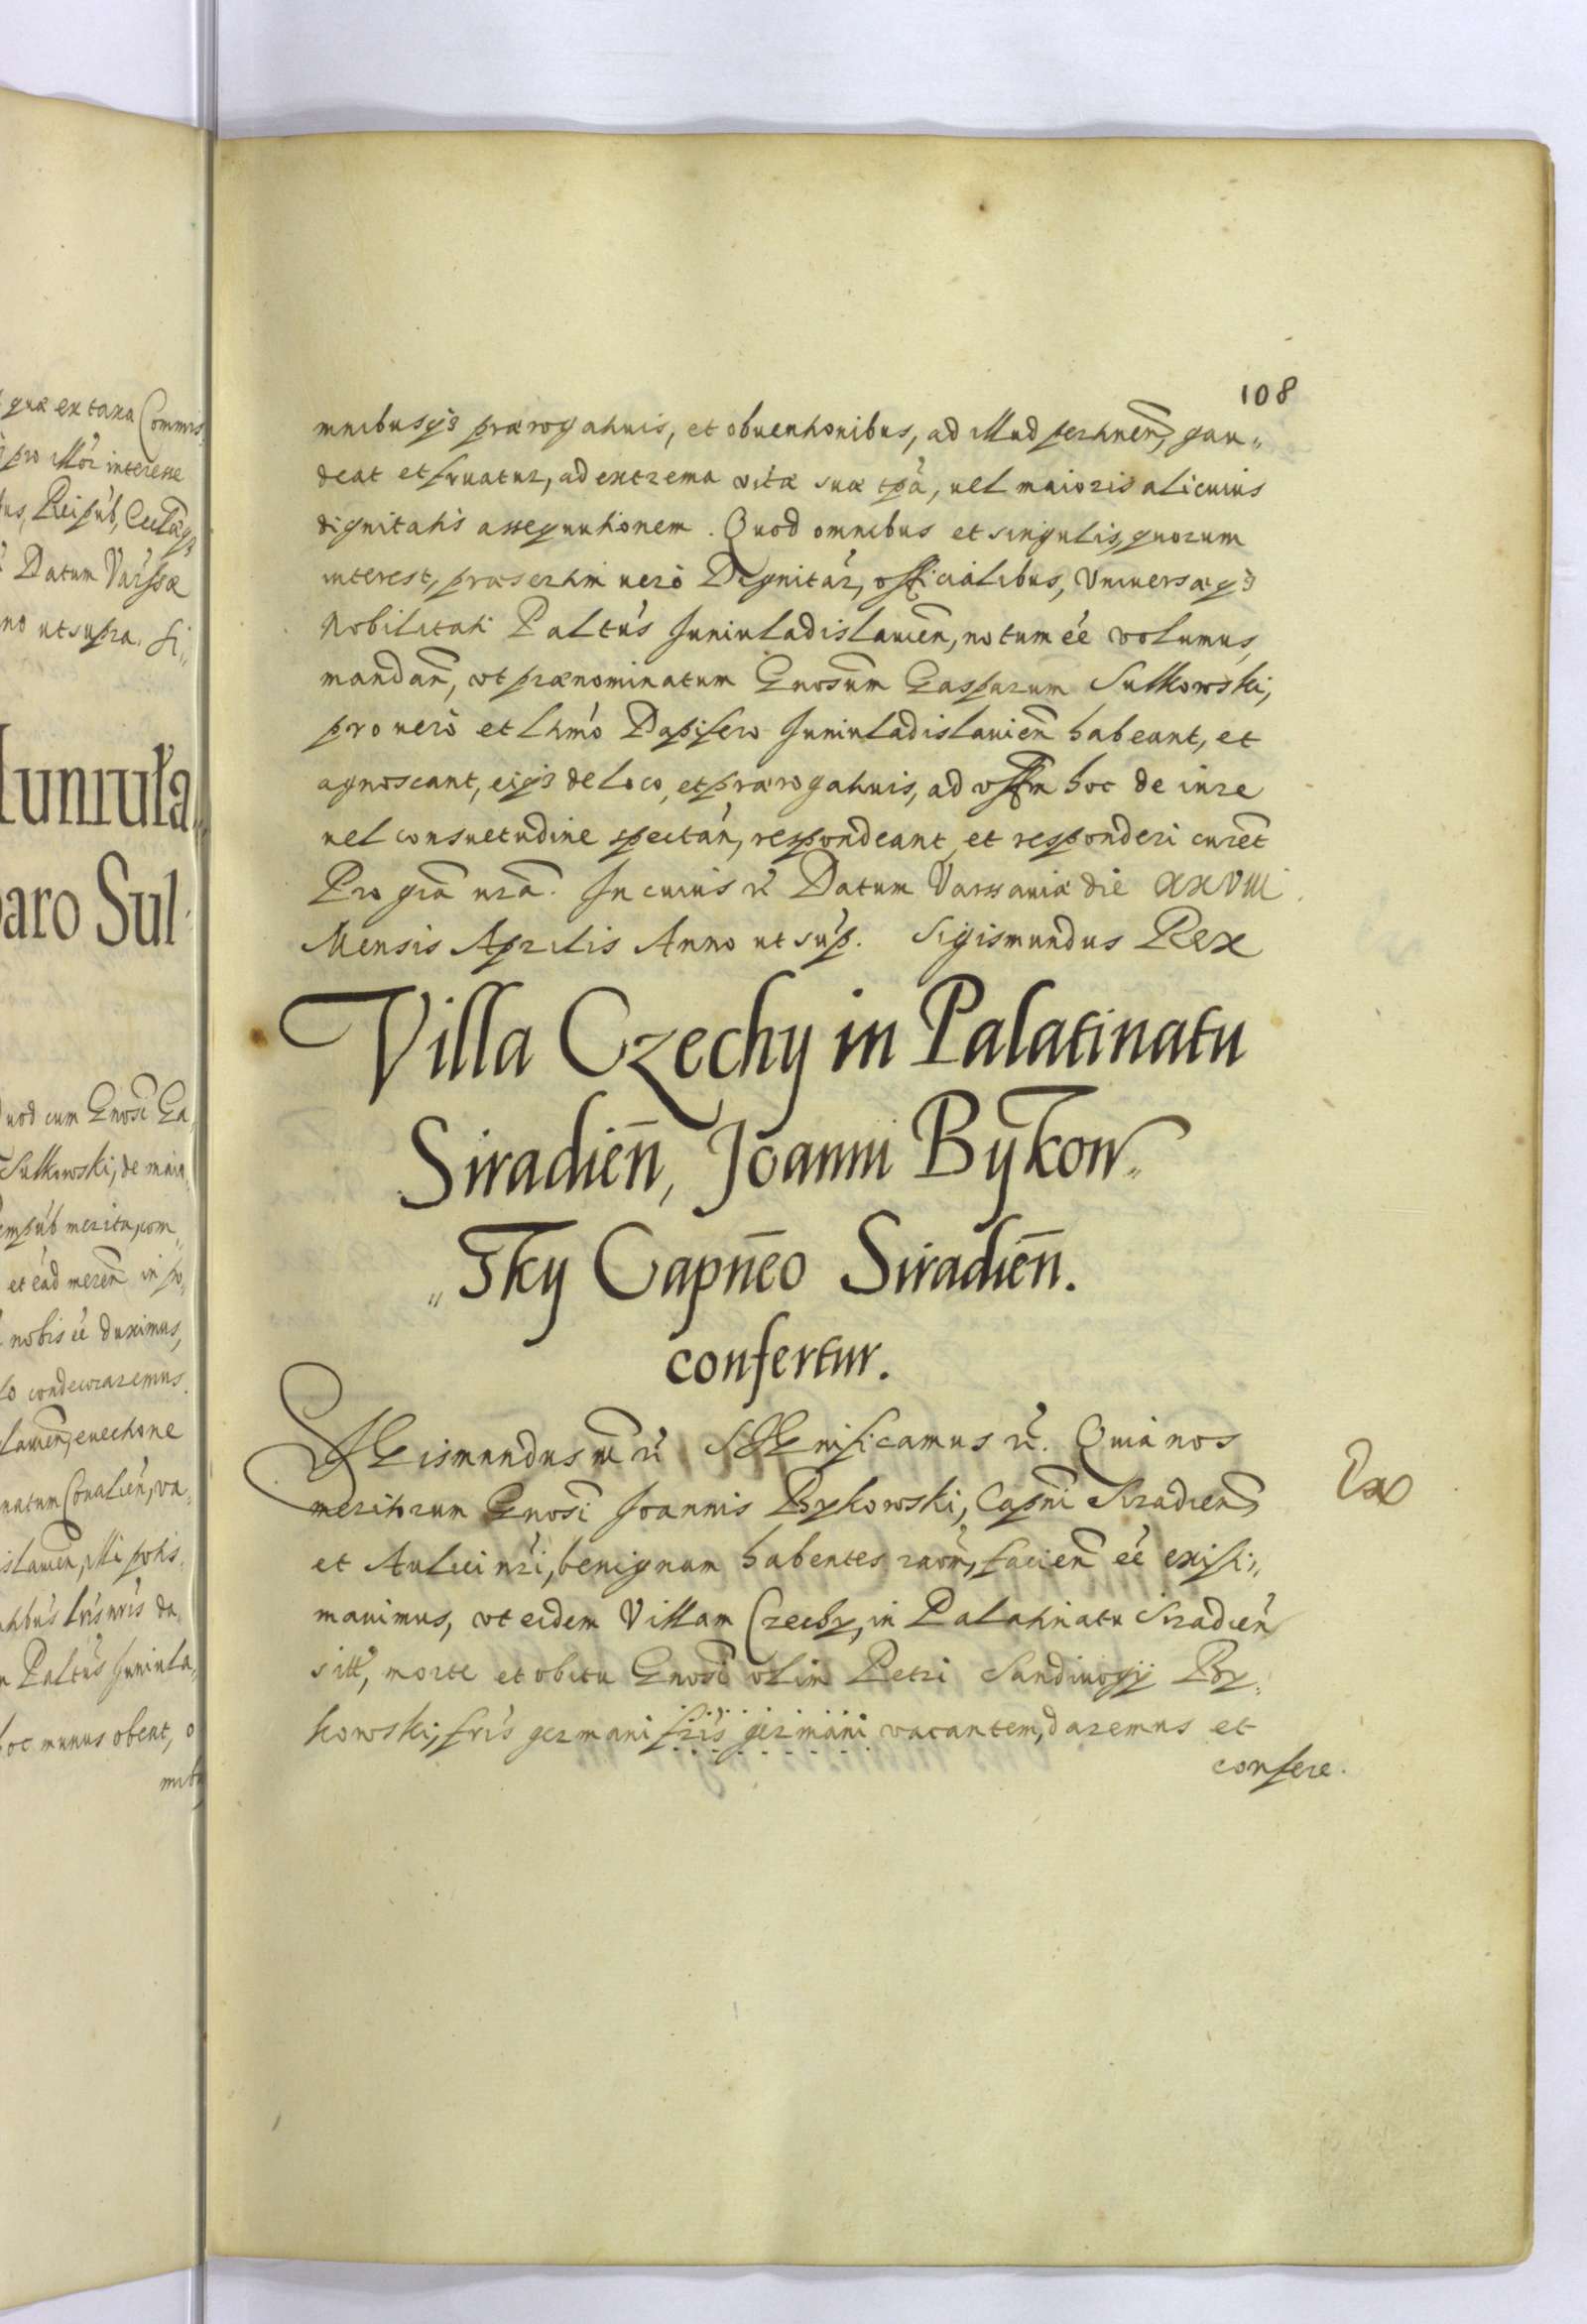 108
mnibusqȝ prærogatiuis, et obuentionibus, ad illud pertineñ, gau„
deat et fruatur, ad extrema vitæ suæ tpã, uel maioris alicuius
dignitatis assequutionem. Quod omnibus et singulis, quorum
interest, præsertim uerò Dignitãr, officialibus, Vniuersæqȝ
Nobilitati Paltũs Iuniuladislauieñ, notum eẽ volumus,
mandañ, vt prænominatum Gnosũm Gasparum Sulkowski,
pro uero et Ltimõ Dapifero Iuniuladislauieñ habeant, et
agnoscant, eiqȝ de loco, et prærogatiuis, ad offm hoc de iure
uel consuetudine spectañ, respondeant, et responderi cureñt
Pro grã nrã. In cuius rẽ Datum Varssauiæ die XXVIII.
Mensis Aprilis Anno ut sup̃. Sigismundus Rex
Villa Czechy in Palatinatu
Siradieñ, Joanni Bykow„
„sky Capñeo Siradieñ.
confertur.
SIGismundus ... SIGnificamus ... Quia nos
meritorum Gnosi Joannis Bykowski, Capñi Siradieñ,
et Aulici nr̃i, benignam habentes raoñ, facieñ eẽ existi„
mauimus, vt eidem Villam Czechy, in Palatinatu Siradieñ
sitt̃, morte et obitu Gnosi olim Petri Sandiuogij By„
kowski, fris̃ germani fris̃ germani vacantem, daremus et
confere.
quæ ex taxa Commis„
pro illor̃ interesse
Datum Varssæ
no ut supra. Si„
Iuniuła„
paro Sul„
uod cum Gnosi Ga
Sulkowski, de
empũb merita, com„
et eãd mereñ in
nobis eẽ duximus,
lo condecoraremus.
lauieñ, euectione
natum Coualieñ, va„
islauieñ, illi potis„
ahbũs lris̃ nris̃ da„
Paltũs Iuniula„
hoc munus obeat, o
mnibu